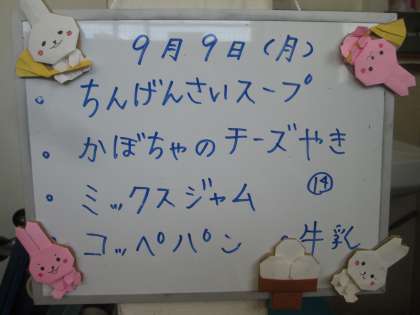 9月9日(月)
・ちんげんさいスープ
・かぼちゃのチーズやき
・ミックスジャム ⑭
コッペパン ・牛乳